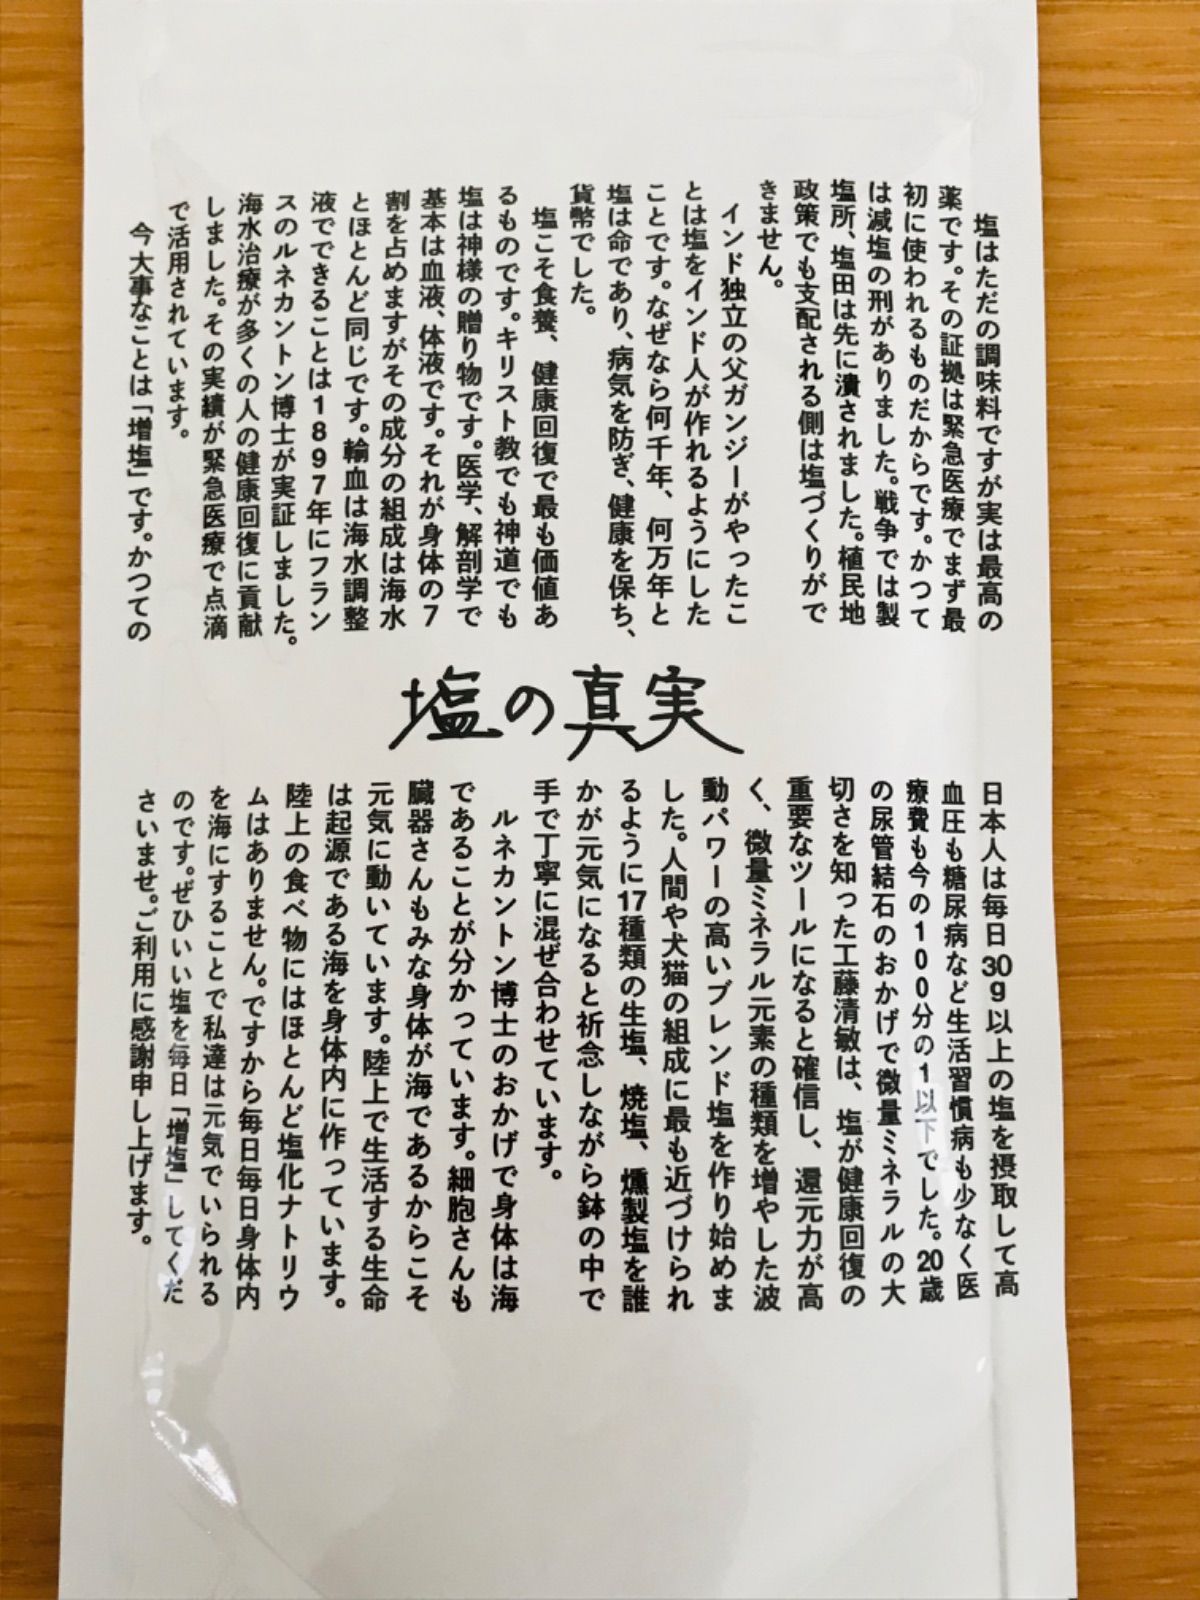 塩はただの調味料ですが実は最高の
薬です。その証拠は緊急医療でまず最
初に使われるものだからです。かつて
は減塩の刑がありました。戦争では製
塩所、塩田は先に潰されました。植民地
政策でも支配される側は塩づくりがで
きません。
インド独立の父ガンジーがやったこ
とは塩をインド人が作れるようにした
ことです。なぜなら何千年、何万年と
塩は命であり、病気を防ぎ、健康を保ち、
貨幣でした。
塩こそ食養、健康回復で最も価値あ
るものです。キリスト教でも神道でも
塩は神様の贈り物です。医学、解剖学で
基本は血液、体液です。それが身体の7
割を占めますがその成分の組成は海水
とほとんど同じです。輸血は海水調整
液でできることは1897年にフラン
スのルネカントン博士が実証しました。
海水治療が多くの人の健康回復に貢献
しました。その実績が緊急医療で点滴
で活用されています。
今大事なことは「増塩」です。かつての
塩の真実
日本人は毎日30g以上の塩を摂取して高
血圧も糖尿病など生活習慣病も少なく医
療費も今の100分の1以下でした。20歳
の尿管結石のおかげで微量ミネラルの大
切さを知った工藤清敏は、塩が健康回復の
重要なツールになると確信し、還元力が高
く、微量ミネラル元素の種類を増やした波
動パワーの高いブレンド塩を作り始めま
した。人間や犬猫の組成に最も近づけられ
るように17種類の生塩、焼塩、燻製塩を誰
かが元気になると祈念しながら鉢の中で
手で丁寧に混ぜ合わせています。
ルネカントン博士のおかげで身体は海
であることが分かっています。細胞さんも
臓器さんもみな身体が海であるからこそ
元気に動いています。陸上で生活する生命
は起源である海を身体内に作っています。
陸上の食べ物にはほとんど塩化ナトリウ
ムはありません。ですから毎日毎日身体内
を海にすることで私達は元気でいられる
のです。ぜひいい塩を毎日「増塩」してくだ
さいませ。ご利用に感謝申し上げます。